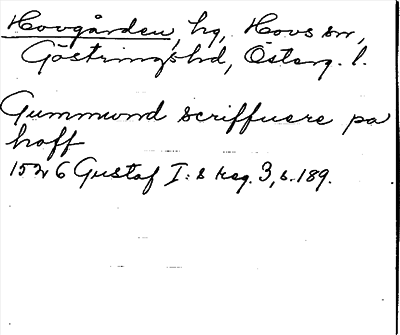 Hovgården, hg, Hovs sn,
Göstringshd, Österg. l.
Gummund scriffuere pa
hoff
1526 Gustaf I:s reg. 3, s. 189.